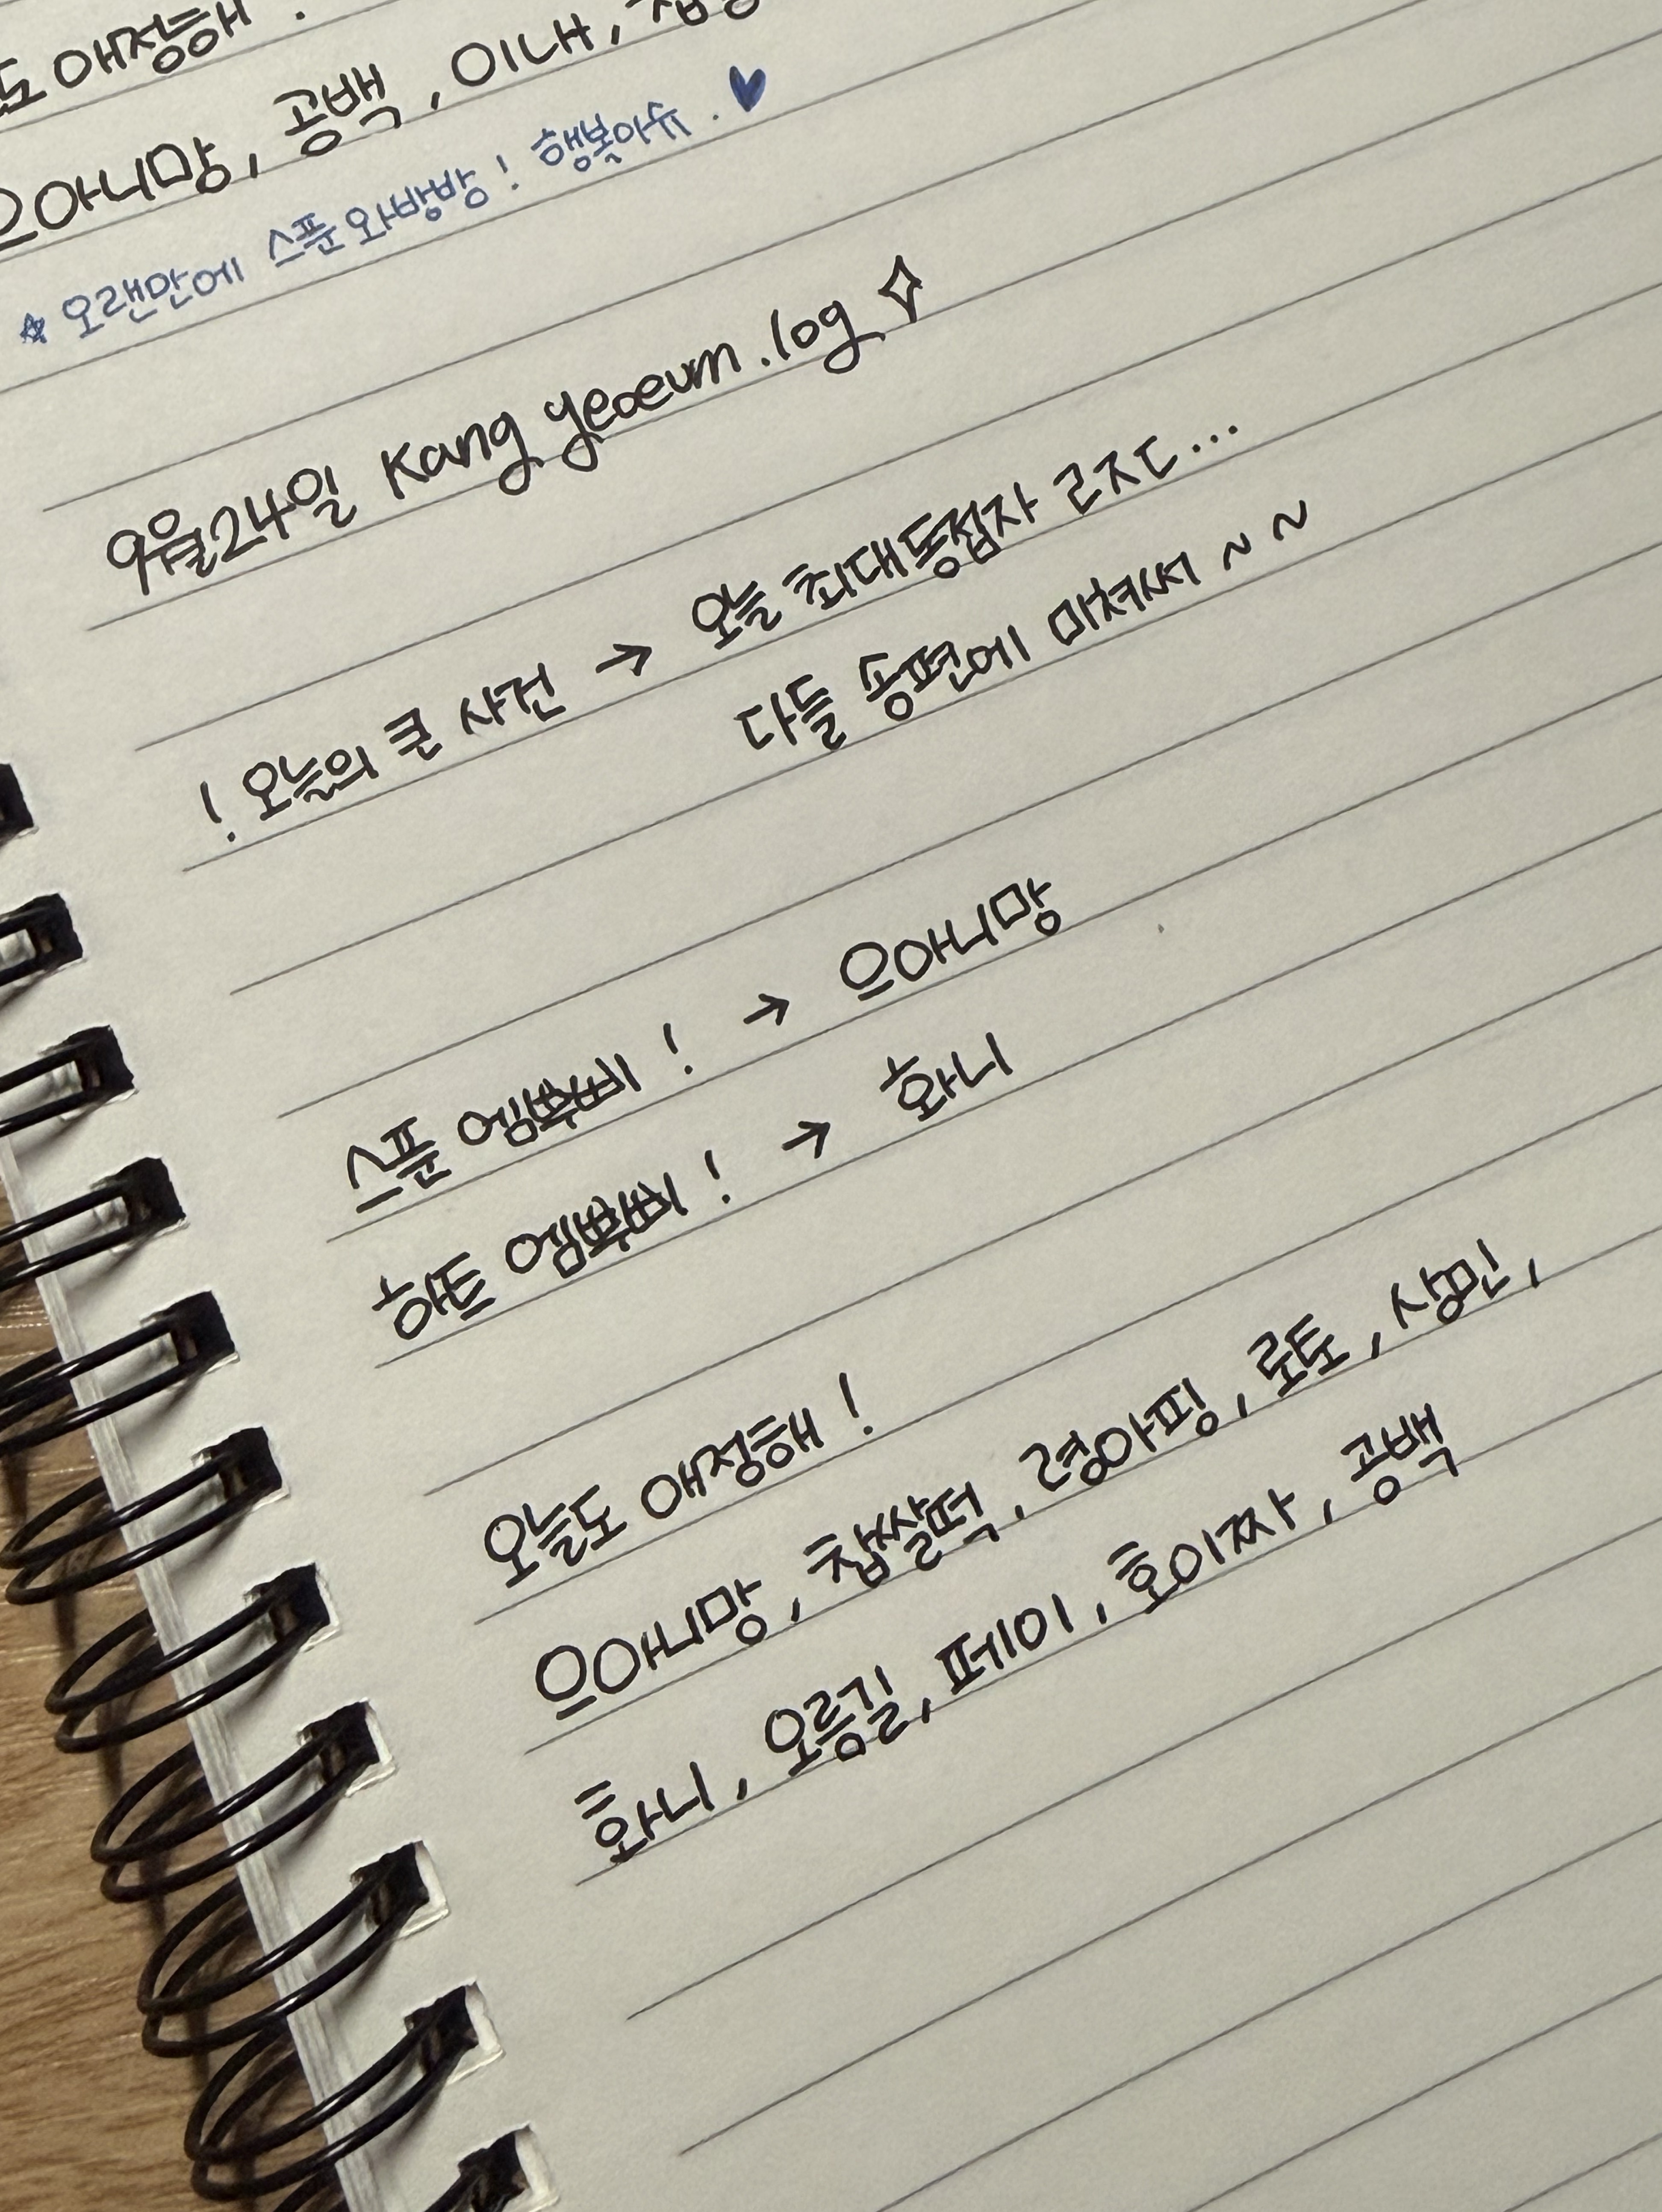 도 애정해!
으아니망, 공백, 이내,
★ 오랜만에 스푼 와방방! 행복아슈. ♥
9월24일 Kang yeoeum.log ✧
! 오늘의 큰 사건 → 오늘 최대동접자 ㄹㅈㄷ...
다들 송편에 미쳐써 ~ ~
스푼 엠뿌삐! → 으아니망
하트 엠뿌삐! → 화니
오늘도 애정해!
으아니망, 찹쌀떡, 령아핑, 로토, 상민,
화니, 오릉길, 페이, 호이짜, 공백